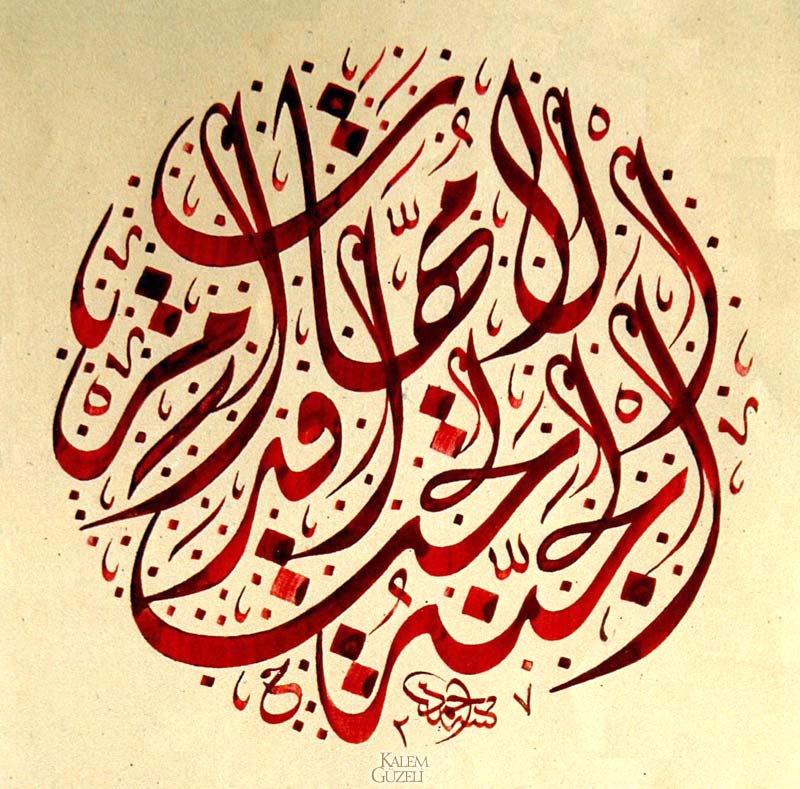 الجَنَّةُ تَحْتَ أَقْدَامِ الأُمَّهَاتِ
KALEM
GÜZELİ